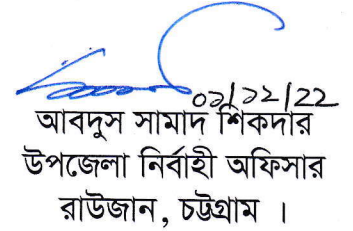 ০১/১২/২২
আবদুস সামাদ শিকদার
উপজেলা নির্বাহী অফিসার
রাউজান, চট্টগ্রাম ।